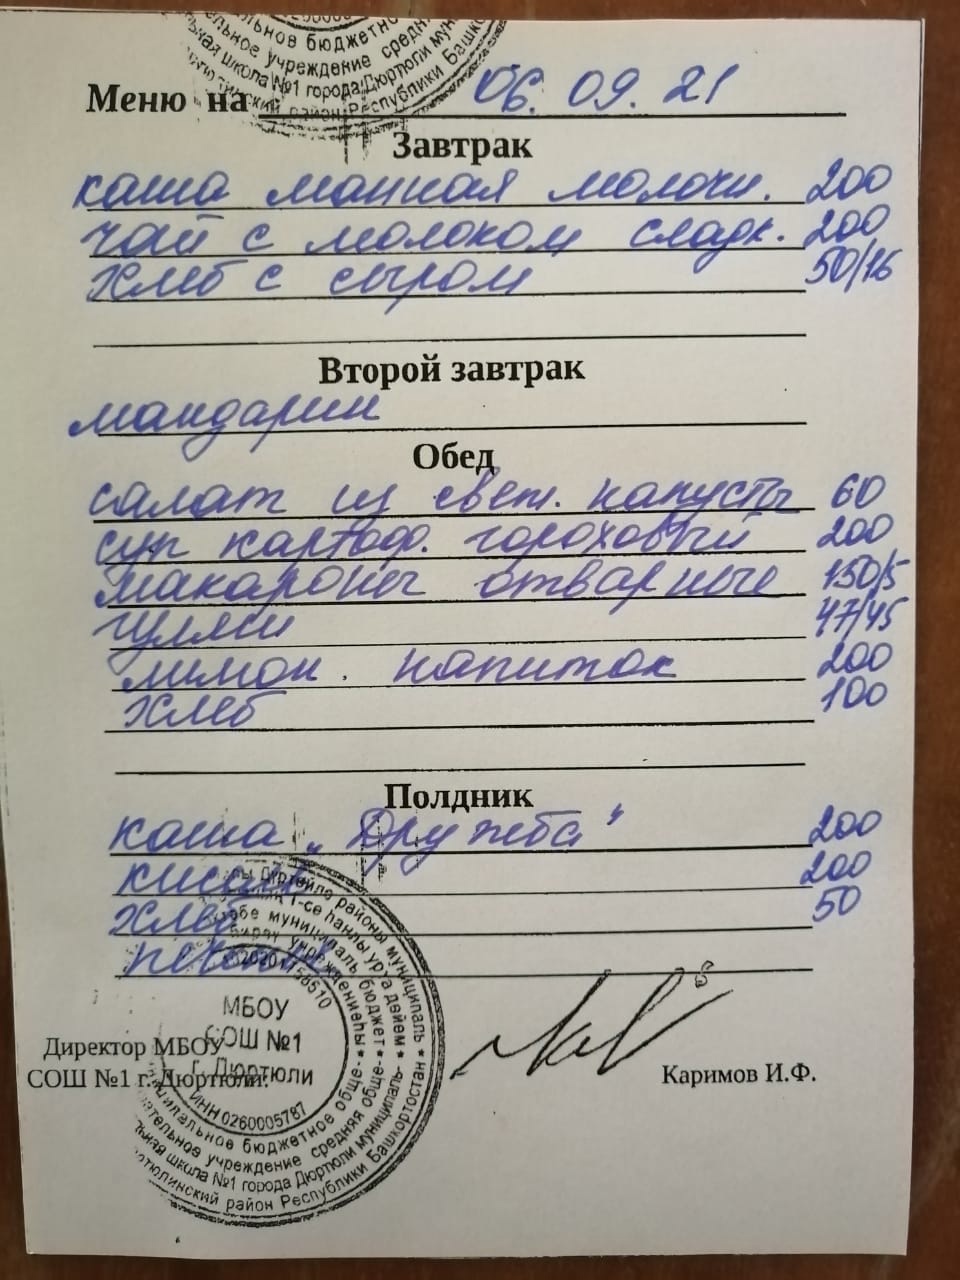 Меню на 06.09.21
Завтрак
каша манная молочн. 200
чай с молоком сладк. 200
хлеб с сыром 50/16
Второй завтрак
мандарин
Обед
салат из свеж. капусты 60
суп картоф. гороховый 200
макароны отварные 150/5
гуляш 47/45
лимон. напиток 200
хлеб 100
Полдник
каша "Дружба" 200
кисель 200
хлеб 50
печенье
МБОУ
СОШ №1
г. Дюртюли
ИНН 0260005787
Директор МБОУ
СОШ №1 г. Дюртюли:
Каримов И.Ф.